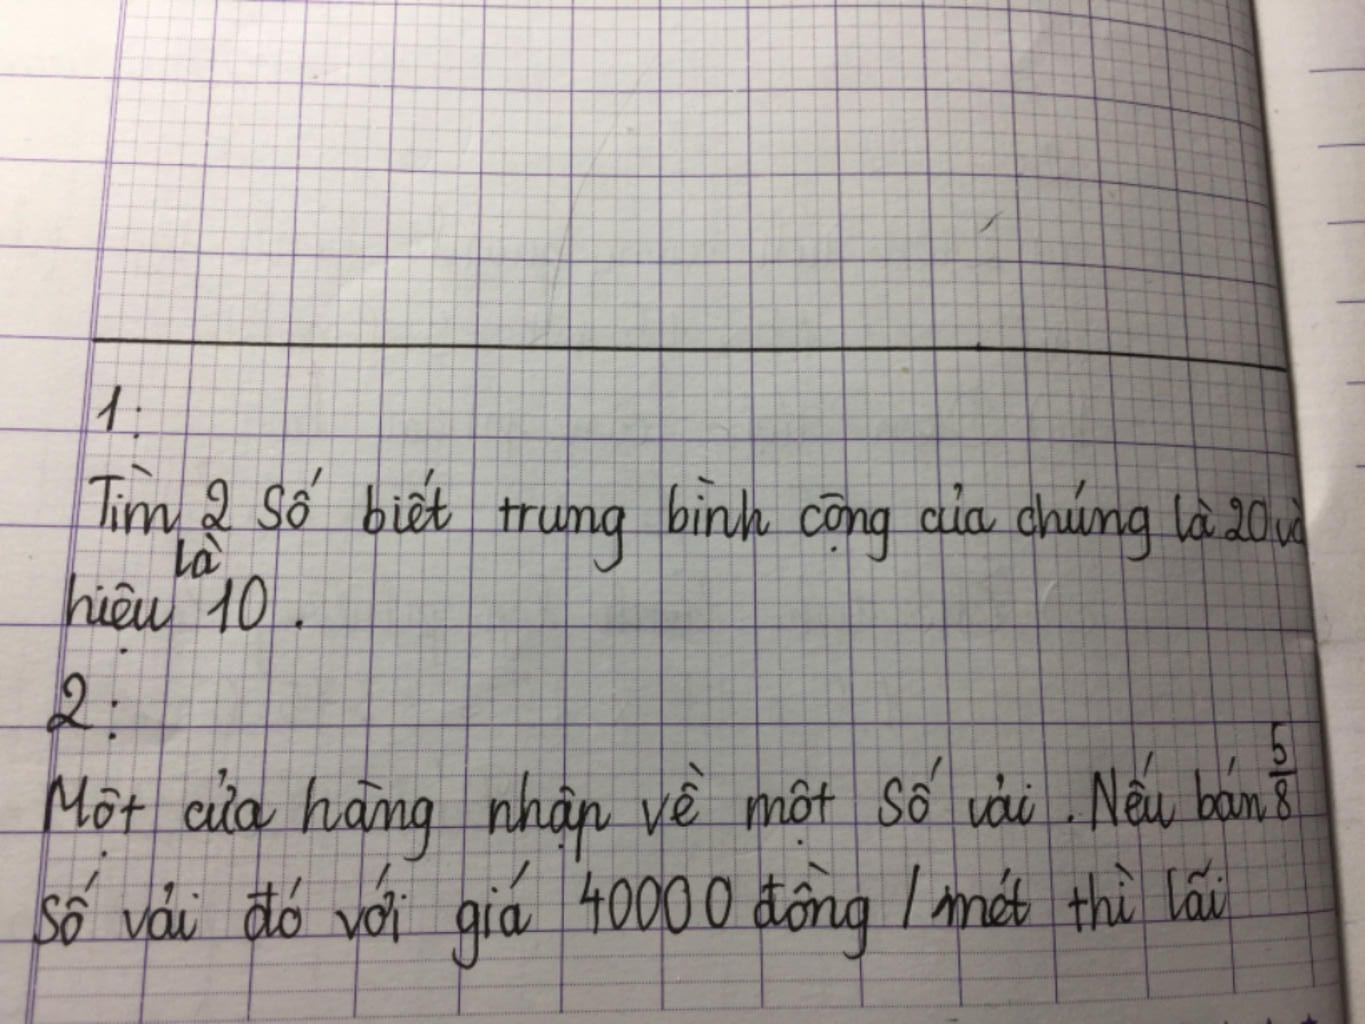 1:
Tìm 2 số biết trung bình cộng của chúng là 20 và
là
hiệu 10.
2:
Một cửa hàng nhập về một số vải. Nếu bán 5/8
số vải đó với giá 40000 đồng / mét thì lãi